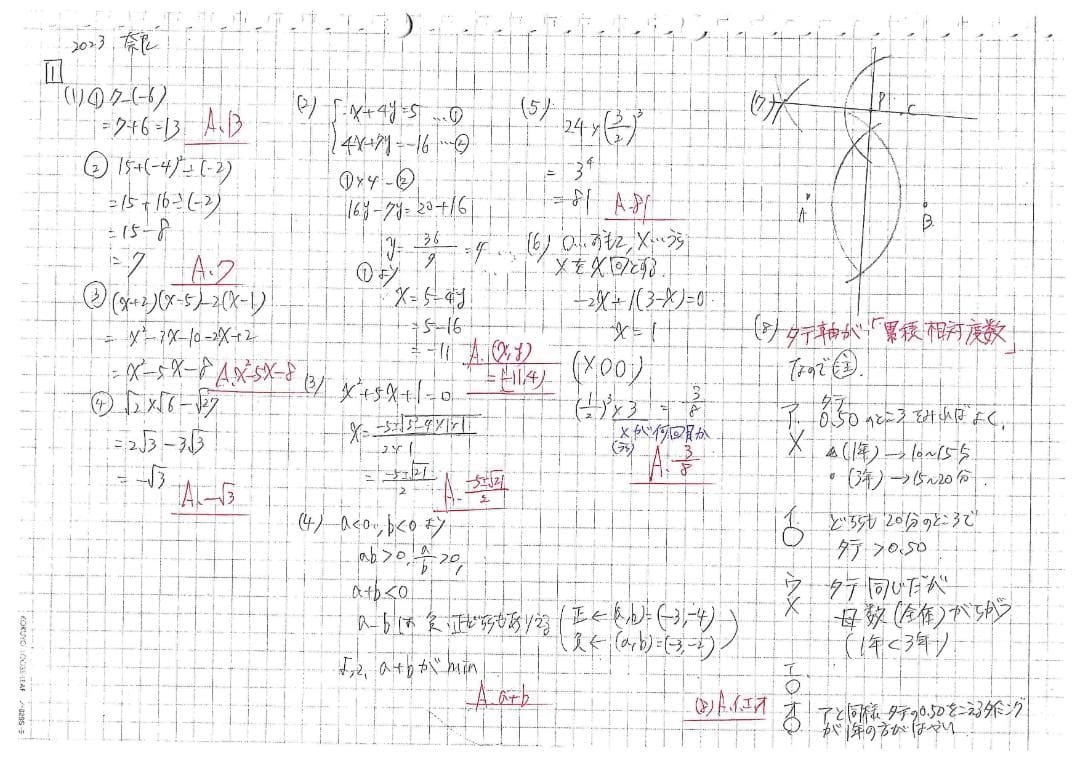 2023 奈良
1
(1)① 7-(-6)
=7+6=13 A.13
② 15+(-4)²÷(-2)
=15+16÷(-2)
=15-8
=7 A.7
③ (x+2)(x-5)-2(x-1)
= x²-3x-10-2x+2
= x²-5x-8 A.x²-5x-8
④ √2×√6-√27
=2√3-3√3
=-√3
A.-√3
(2) { x+4y=5 …①
4x+7y=-16 …②
①×4-②
16y-7y=20+16
y=36/9=4 …
①より
x=5-4y
=5-16
=-11 A.(x,y)
=(-11,4)
(3) x²+5x+1=0
x=(-5±√(5²-4×1×1))/(2×1)
=(-5±√21)/2 A.(-5±√21)/2
(4) a<0, b<0より
ab>0, a/b>0,
a+b<0
a-bは負・正どちらもありえる (正←(a,b)=(-3,-4)
負←(a,b)=(-3,-2))
よって, a+bがmin
A.a+b
(5)
24×(3/2)³
= 3⁴
=81 A.81
(6) O…おもて, X…うら
XをX回とする.
-2x+1(3-x)=0
x=1
(XOO)
(1/2)³×3 = 3/8
Xが何回目か
(うら)
A.3/8
(7)
P
C
A
B
(8) タテ軸が「累積相対度数」
なので注.
ア タテ
0.50のところをみればよく,
X
▲(1年)→10~15分
•(3年)→15~20分.
イ どちらも20分のところで
O タテ>0.50
ウ タテ同じだが
X 母数(全体)がちがう
(1年<3年)
エ
O
オ アと同様タテの0.50をこえるタイミング
O が1年の方がはやい
(8)A.イ,エ,オ
KOKUYO LOOSE-LEAF